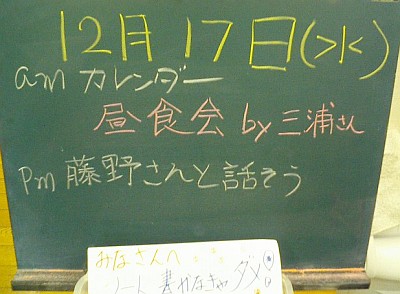 12月17日(水)
am カレンダー
昼食会 by 三浦さん
Pm 藤野さんと話そう
みなさんへ
ノート書かなきゃダメ